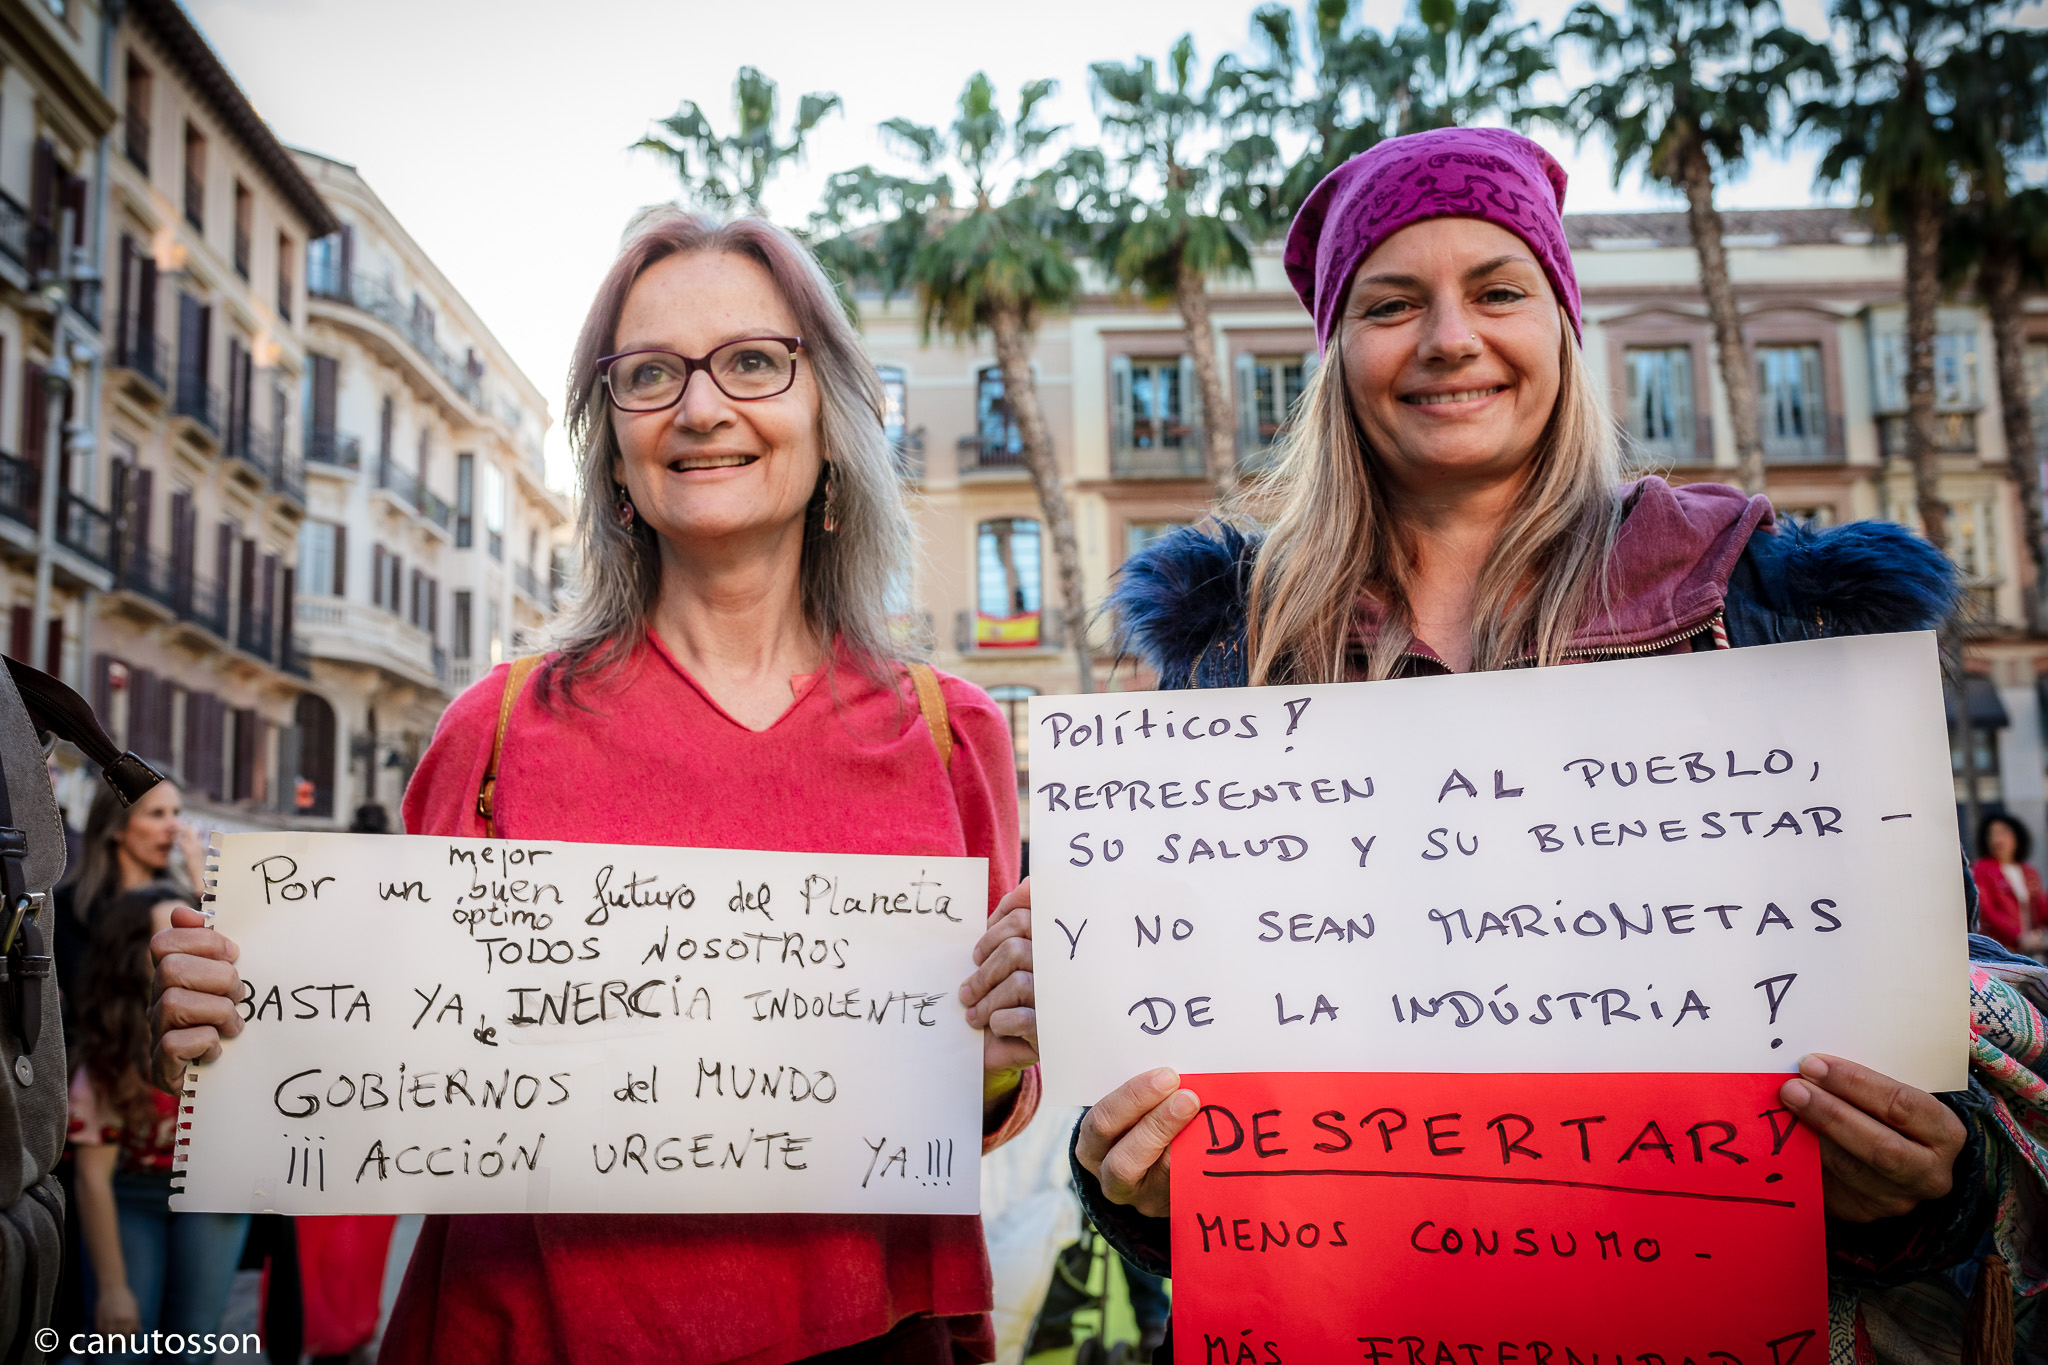 mejor
Por un buen futuro del Planeta
óptimo
TODOS NOSOTROS
BASTA YA de INERCIA INDOLENTE
GOBIERNOS del MUNDO
¡¡¡ ACCIÓN URGENTE YA!!!
Políticos!
REPRESENTEN AL PUEBLO,
SU SALUD Y SU BIENESTAR -
Y NO SEAN MARIONETAS
DE LA INDÚSTRIA!
DESPERTAR!
MENOS CONSUMO -
MÁS FRATERNIDAD!
© canutosson